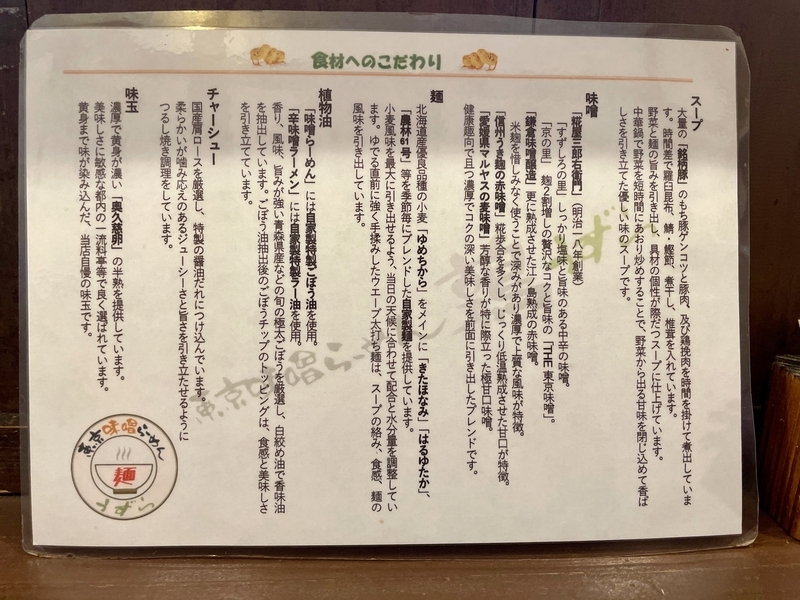 食材へのこだわり
スープ
大量の「銘柄豚」のもち豚ゲンコツと豚肉、及び鶏挽肉を時間を掛けて煮出していま
す。時間差で羅臼昆布、鯖、鰹節、煮干し、椎茸を入れています。
野菜と麺の旨みを引き出し、具材の個性が際だつスープに仕上げています。
中華鍋で野菜を短時間にあおり炒めすることで、野菜から出る甘味を閉じ込めて香ば
しさを引き立てた優しい味のスープです。
味噌
「糀屋三郎右衛門」（明治一八年創業）
「すずしろの里」しっかり塩味と旨味のある中辛の味噌。
「京の里」麹２割増しの贅沢なコクと旨味の「THE 東京味噌」。
「鎌倉味噌醸造」更に熟成された江ノ島熟成の赤味噌。
米麹を惜しみなく使うことで深みがあり濃厚で上質な風味が特徴。
「信州うき麹の赤味噌」糀歩合を多くし、じっくり低温熟成させた甘口が特徴。
「愛媛県マルヤスの麦味噌」芳醇な香りが特に際立った極甘口味噌。
健康趣向で且つ濃厚でコクの深い美味しさを前面に引き出したブレンドです。
麺
北海道産優良品種の小麦「ゆめちから」をメインに「きたほなみ」「はるゆたか」、
「農林61号」等を季節毎にブレンドした自家製麺を提供しています。
小麦風味を最大に引き出せるよう、当日の天候に合わせて配合と水分量を調整してい
ます。ゆでる直前に強く手揉みしたウエーブ太打ち麺は、スープの絡み、食感、麺の
風味を引き出しています。
植物油
「味噌らーめん」には自家製特製ごぼう油を使用。
「辛味噌ラーメン」には自家製特製ラー油を使用。
香り、風味、旨みが強い青森県産などの旬の極太ごぼうを厳選し、白絞め油で香味油
を抽出しています。ごぼう油抽出後のごぼうチップのトッピングは、食感と美味しさ
を引き立てています。
チャーシュー
国産肩ロースを厳選し、特製の醤油だれにつけ込んでいます。
柔らかいが噛み応えのあるジューシーさと旨さを引き立たせるように
つるし焼き調理をしています。
味玉
濃厚で黄身が濃い「奥久慈卵」の半熟を提供しています。
美味しさに敏感な都内の一流料亭等で良く選ばれています。
黄身まで味が染み込んだ、当店自慢の味玉です。
東京味噌らーめん
東京味噌らーめん
麺